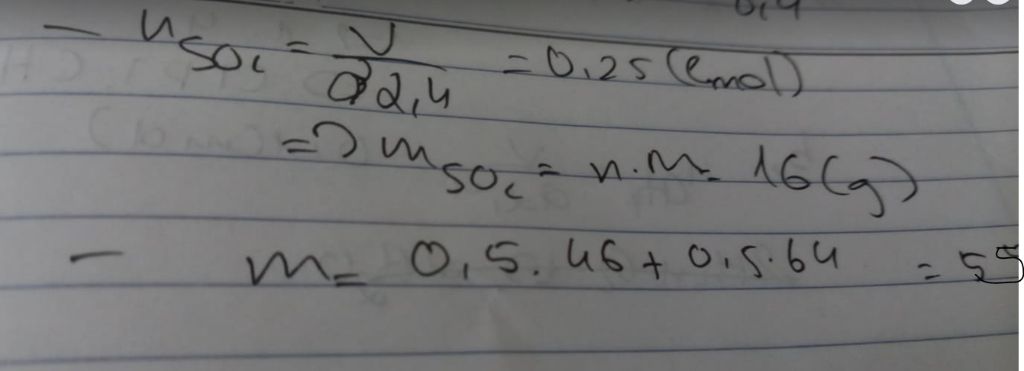 0,4
- n SO₂ = V / 22,4 = 0,25 (mol)
=> m SO₂ = n.M = 16 (g)
- m = 0,5.46 + 0,5.64 = 55